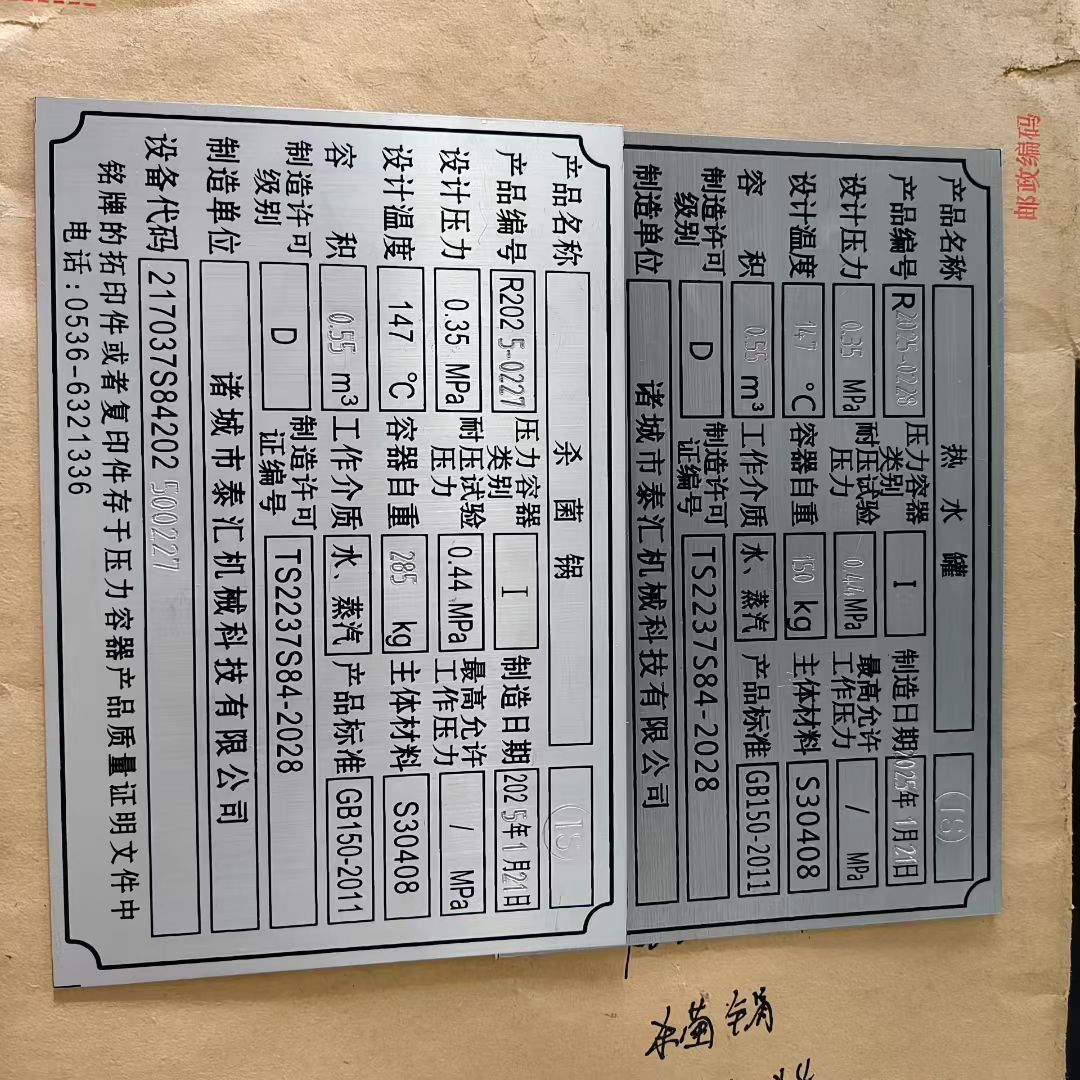 产品名称 杀菌锅 (15)
产品编号 R2025-0227 压力容器类别 I 制造日期 2025年1月21日
设计压力 0.35 MPa 耐压试验压力 0.44 MPa 最高允许工作压力 / MPa
设计温度 147 ℃ 容器自重 285 kg 主体材料 S30408
容积 0.55 m³ 工作介质 水、蒸汽 产品标准 GB150-2011
制造许可级别 D 制造许可证编号 TS2237S84-2028
制造单位 诸城市泰汇机械科技有限公司
设备代码 217037S842025000227
铭牌的拓印件或者复印件存于压力容器产品质量证明文件中
电话:0536-6321336
产品名称 热水罐
产品编号 R2025-0228 压力容器类别 I 制造日期 2025年1月21日
设计压力 0.35 MPa 耐压试验压力 0.44 MPa 最高允许工作压力 / MPa
设计温度 147 ℃ 容器自重 150 kg 主体材料 S30408
容积 m³ 工作介质 水、蒸汽 产品标准 GB150-2011
制造许可级别 D 制造许可证编号 TS2237S84-2028
制造单位 诸城市泰汇机械科技有限公司
邮政编码
杀菌锅